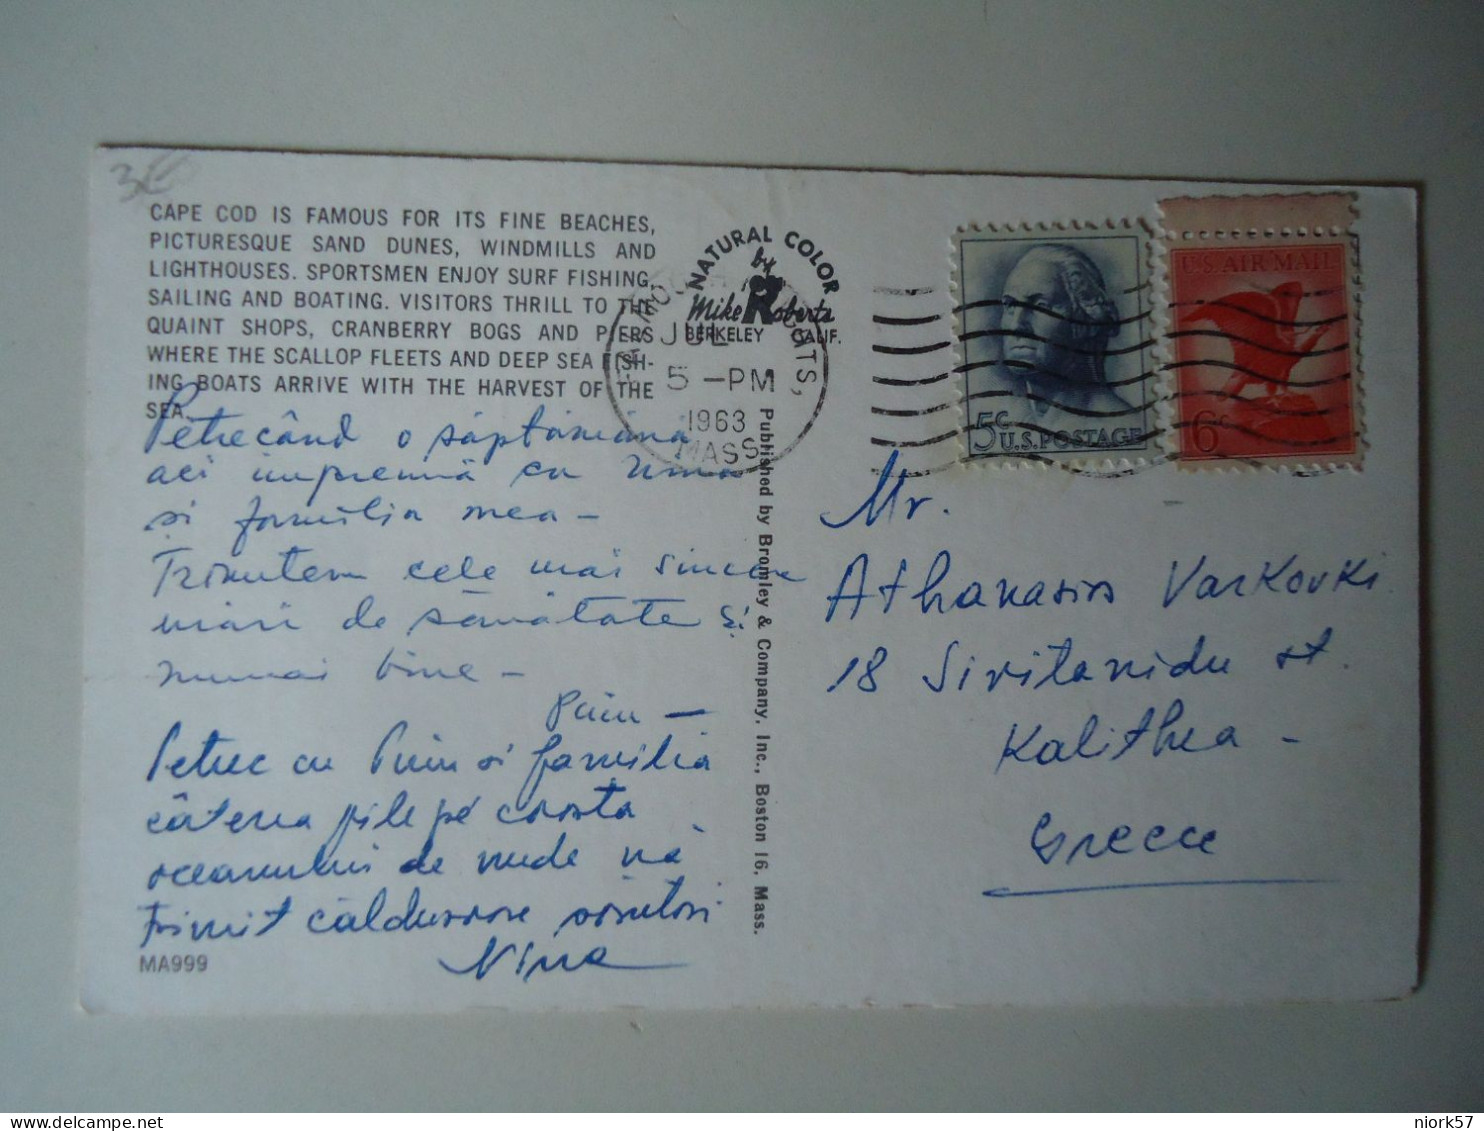 3€
CAPE COD IS FAMOUS FOR ITS FINE BEACHES,
PICTURESQUE SAND DUNES, WINDMILLS AND
LIGHTHOUSES. SPORTSMEN ENJOY SURF FISHING,
SAILING AND BOATING. VISITORS THRILL TO THE
QUAINT SHOPS, CRANBERRY BOGS AND PIERS
WHERE THE SCALLOP FLEETS AND DEEP SEA FISH-
ING BOATS ARRIVE WITH THE HARVEST OF THE
SEA.
Petrecând o săptămână
aci împreună cu
și familia mea –
Trimitem cele mai sincere
urări de sănătate și
numai bine –
Puiu –
Petrec cu Puiu și familia
câteva zile pe coasta
oceanului de unde vă
trimit călduroase sărutări
Nina
MA999
NATURAL COLOR
by
Mike Roberts
BERKELEY CALIF.
JUL
5 –PM
1963
MASS.
Published by Bromley & Company, Inc., Boston 16, Mass.
5c
U.S. POSTAGE
U.S. AIR MAIL
6c
Mr.
Athanasios Varkovki
18 Sivitanidu st.
Kalithea –
Greece
delcampe.net
niork57